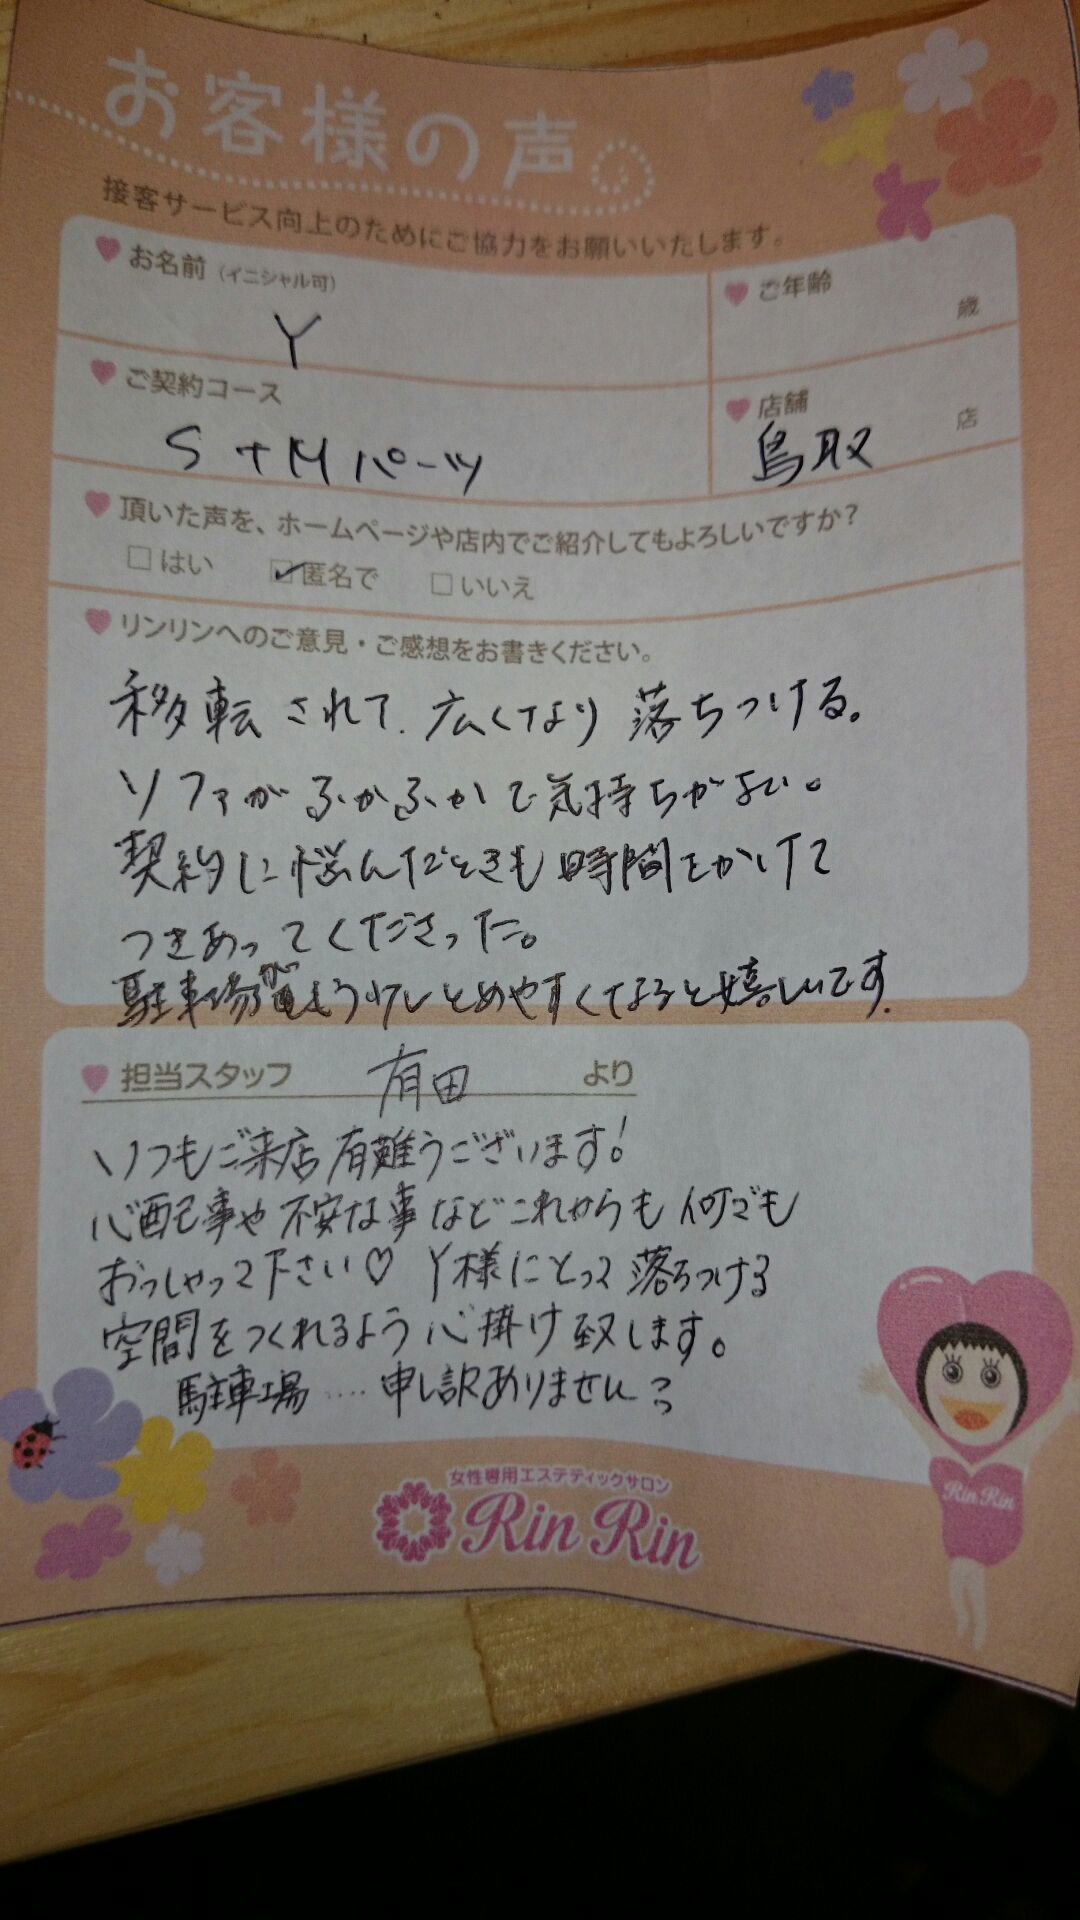 お客様の声
接客サービス向上のためにご協力をお願いいたします。
お名前（イニシャル可）
Y
ご年齢
歳
ご契約コース
S+Mパーツ
店舗
鳥取 店
頂いた声を、ホームページや店内でご紹介してもよろしいですか？
はい 匿名で いいえ
リンリンへのご意見・ご感想をお書きください。
移転されて、広くなり落ちつける。
ソファがふかふかで気持ちがよい。
契約に悩んだときも時間をかけて
つきあってくださった。
駐車場がもう少しとめやすくなると嬉しいです。
担当スタッフ 有田 より
いつもご来店有難うございます！
心配事や不安な事などこれからも何でも
おっしゃって下さい♡ Y様にとって落ちつける
空間をつくれるよう心掛け致します。
駐車場‥‥申し訳ありません
女性専用エステティックサロン
Rin Rin
Rin Rin